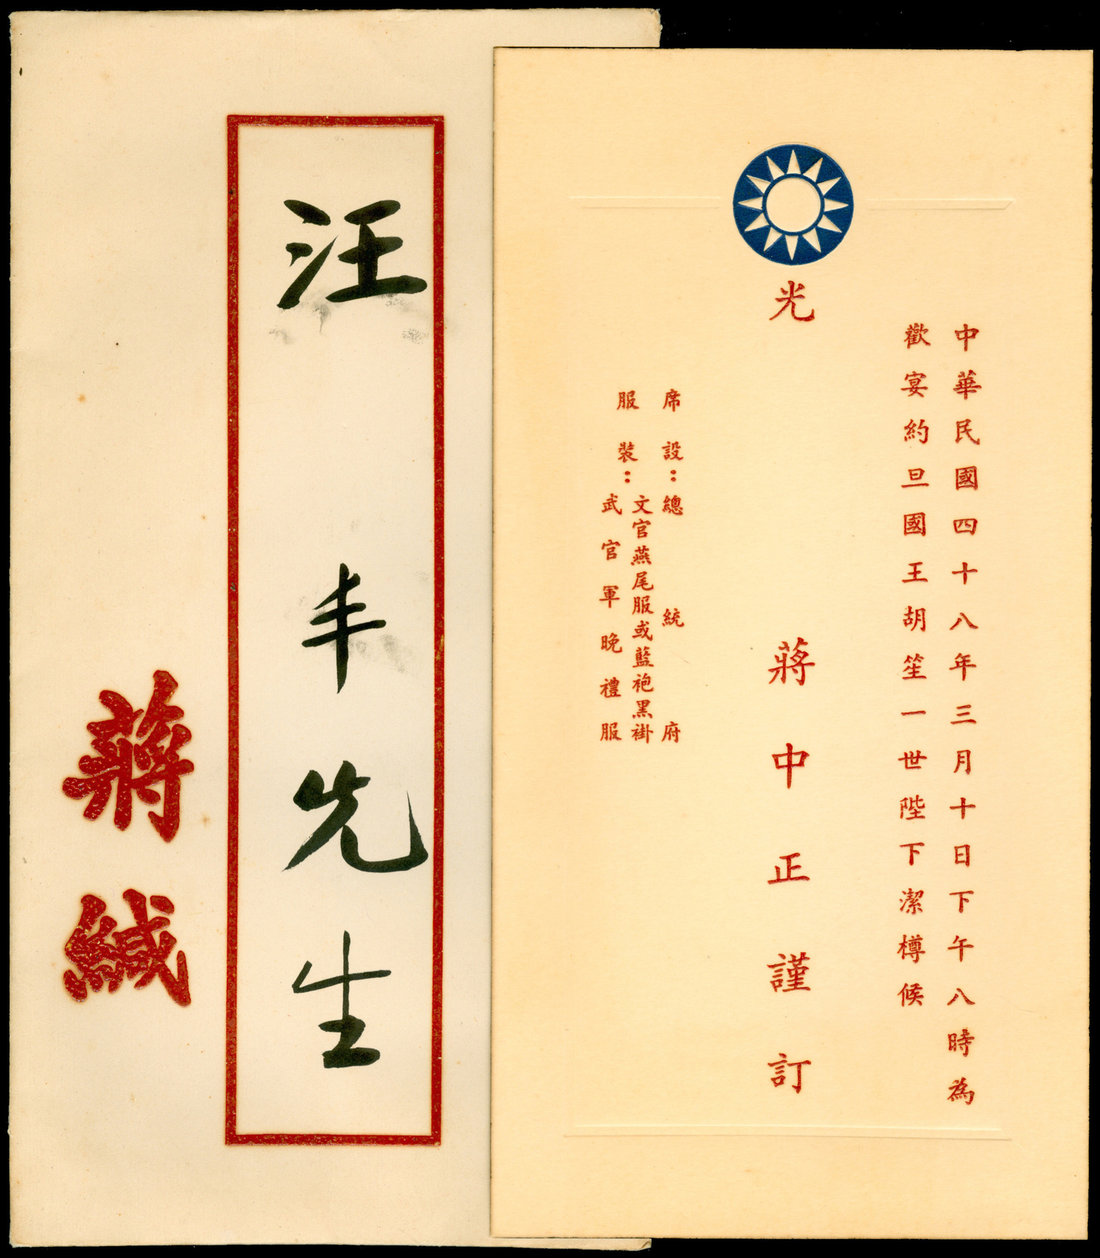 中華民國四十八年三月十日下午八時為
歡宴約旦國王胡笙一世陛下潔樽候
光
蔣中正謹訂
席設：總統府
服裝：文官燕尾服或藍袍黑褂
武官軍晚禮服
汪丰先生
蔣緘